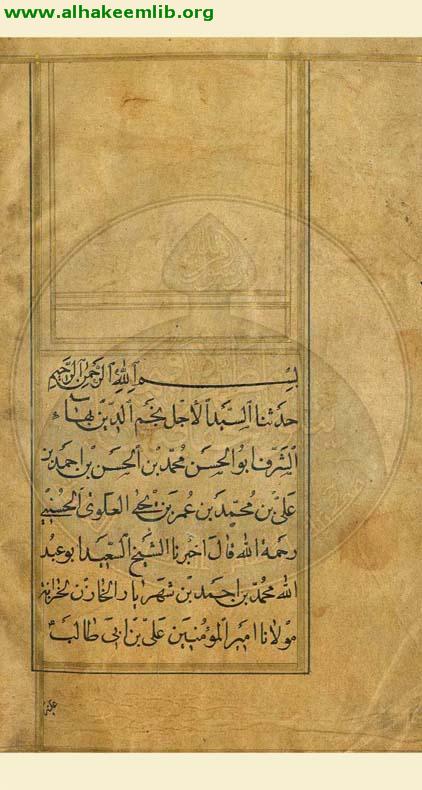 www.alhakeemlib.org
بسم الله الرحمن الرحيم
حدثنا السيد الاجل نجم الدين بهاء
الشرف ابو الحسن محمد بن الحسن بن احمد بن
علي بن محمد بن عمر بن يحيى العلوي الحسيني
رحمه الله قال اخبرنا الشيخ السعيد ابو عبد
الله محمد بن احمد بن شهريار الخازن لخزانة
مولانا امير المؤمنين علي بن ابي طالب
عليه